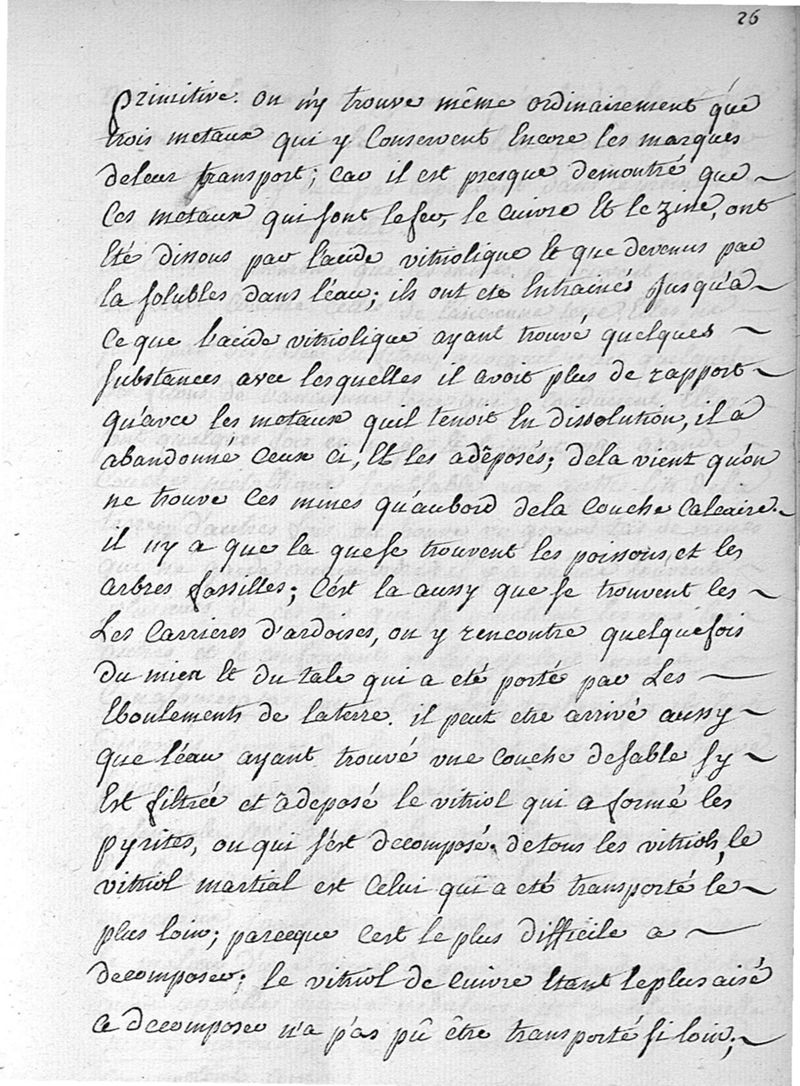 26
primitive. on n'y trouve même ordinairement que
trois metaux qui y Conservent Encore les marques
deleur transport; car il est presque demontré que
Ces metaux qui sont lefer, le Cuivre Et le zinc, ont
Eté dissous par l'acide vitriolique Et que devenus par
la solubles dans l'éau; ils ont eté Entrainés jusqu'a
Ce que l'acide vitriolique ayant trouvé quelques
substances avec lesquelles il avoit plus de rapport
qu'avec les metaux quil tenoit En dissolution, il a
abandonné Ceux ci, Et les adéposés; dela vient qu'on
ne trouve Ces mines qu'aubord dela Couche Calcaire.
il ny a que la quese trouvent les poissons, et les
arbres fossilles; C'est la aussy que se trouvent les
Les Carrieres d'ardoises, on y rencontre quelquefois
du mica Et du talc qui a eté porté par Les
Eboulements de laterre. il peut etre arrivé aussy
que l'éau ayant trouvé une Couche desable sy
Est filtrée et adeposé le vitriol qui a formé les
pyrites, ou qui s'ést decomposé. detous les vitriols, le
vitriol martial est Celui qui a eté transporté le
plus loin; parceque C'est le plus difficile a
decomposer; le vitriol de Cuivre Etant leplus aisé
a decomposer n'a pas pû être transporté si loin;